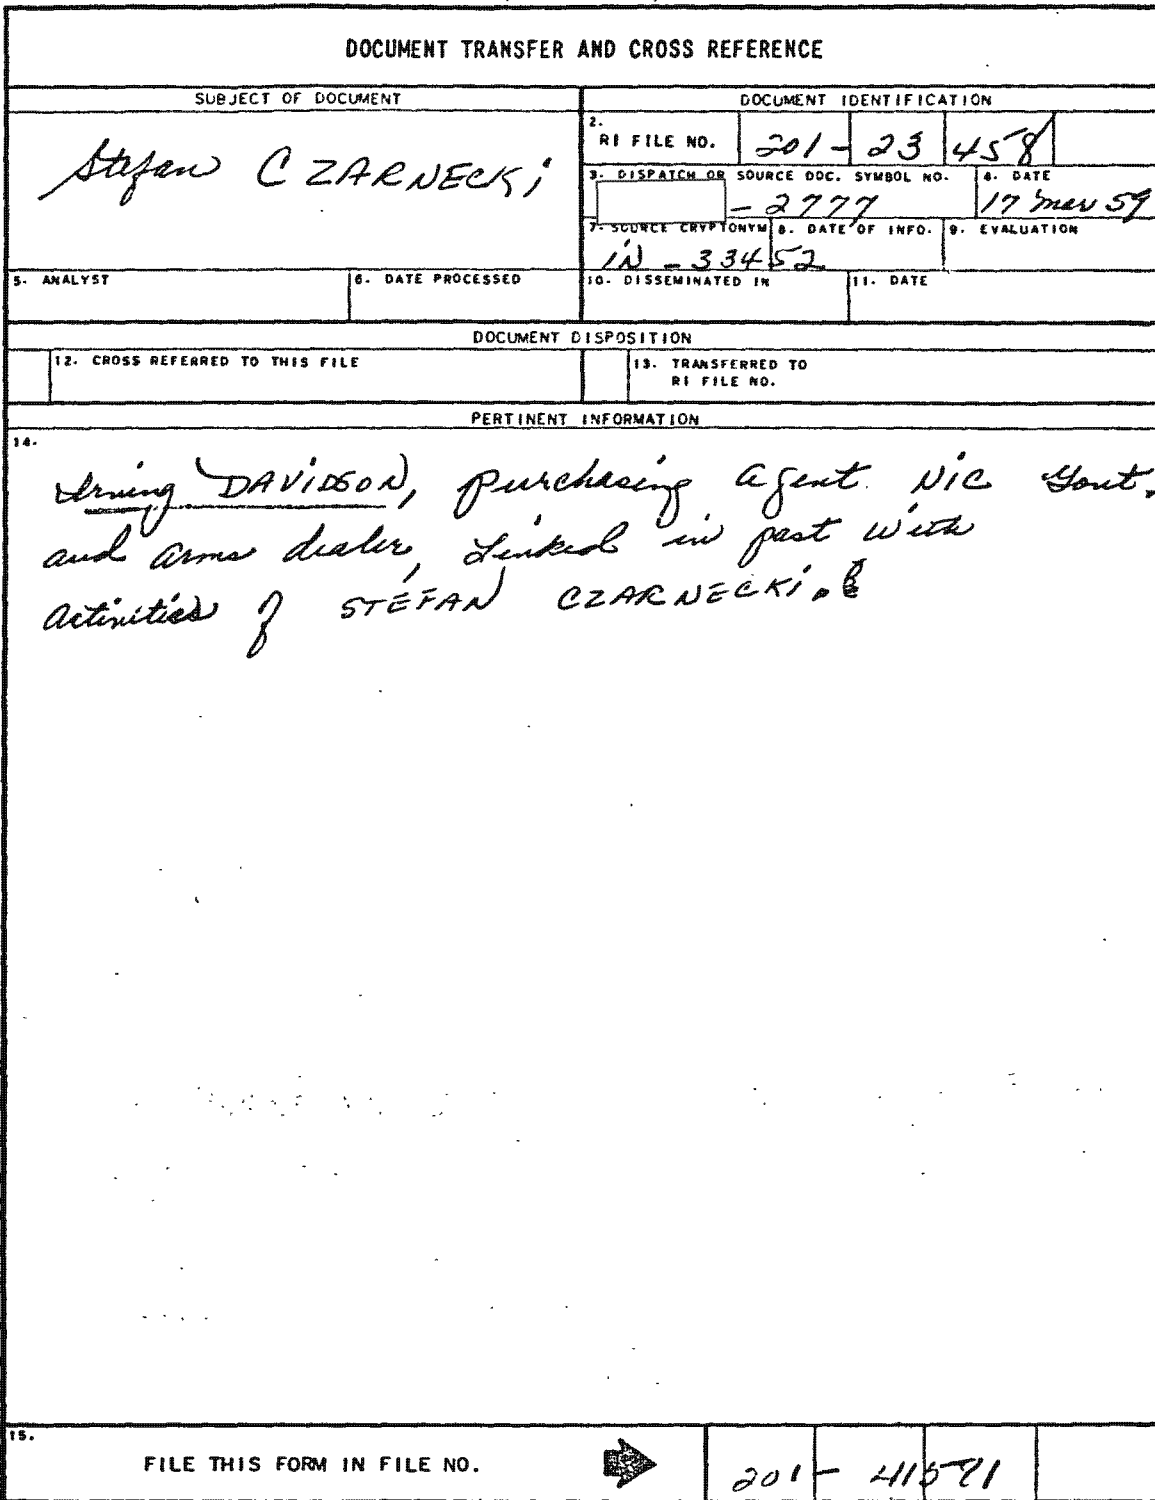 DOCUMENT TRANSFER AND CROSS REFERENCE
SUBJECT OF DOCUMENT
Stefan CZARNECKi
DOCUMENT IDENTIFICATION
2.
RI FILE NO. 201 - 23 458
3. DISPATCH OR SOURCE DOC. SYMBOL NO.
- 2777
4. DATE
17 Mar 59
7. SOURCE CRYPTONYM
8. DATE OF INFO.
9. EVALUATION
iN - 33452
5. ANALYST
6. DATE PROCESSED
10. DISSEMINATED IN
11. DATE
DOCUMENT DISPOSITION
12. CROSS REFERRED TO THIS FILE
13. TRANSFERRED TO
RI FILE NO.
PERTINENT INFORMATION
14.
Irving DAViDSON, purchasing agent. NiC Govt.
and arms dealer, Linked in past with
activities of STEFAN CZARNECKi.
15.
FILE THIS FORM IN FILE NO.
201 - 41571